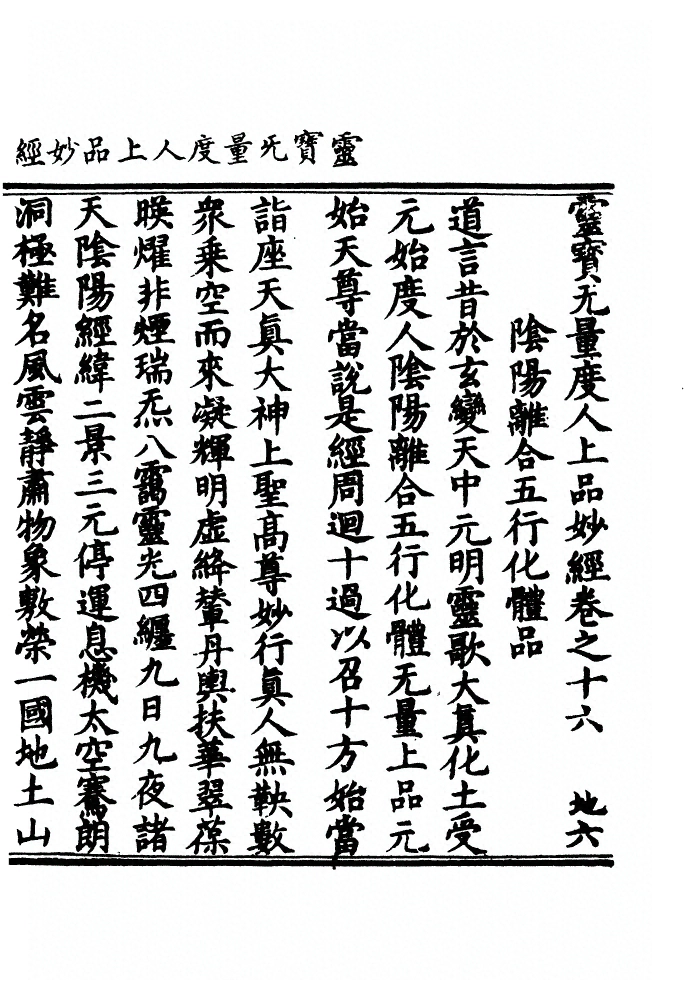 靈寶无量度人上品妙經
靈寶无量度人上品妙經卷之十六 地六
陰陽離合五行化體品
道言昔於玄變天中元明靈歌大真化土受
元始度人陰陽離合五行化體无量上品元
始天尊當說是經周迴十過以召十方始當
詣座天眞大神上聖高尊妙行眞人無鞅數
衆乘空而來凝輝明虛絳輦丹輿扶華翠葆
暎燿非煙瑞炁八靄靈光四纏九日九夜諸
天陰陽經緯二景三元停運息機太空騫朗
洞極難名風雲靜肅物象敷榮一國地土山